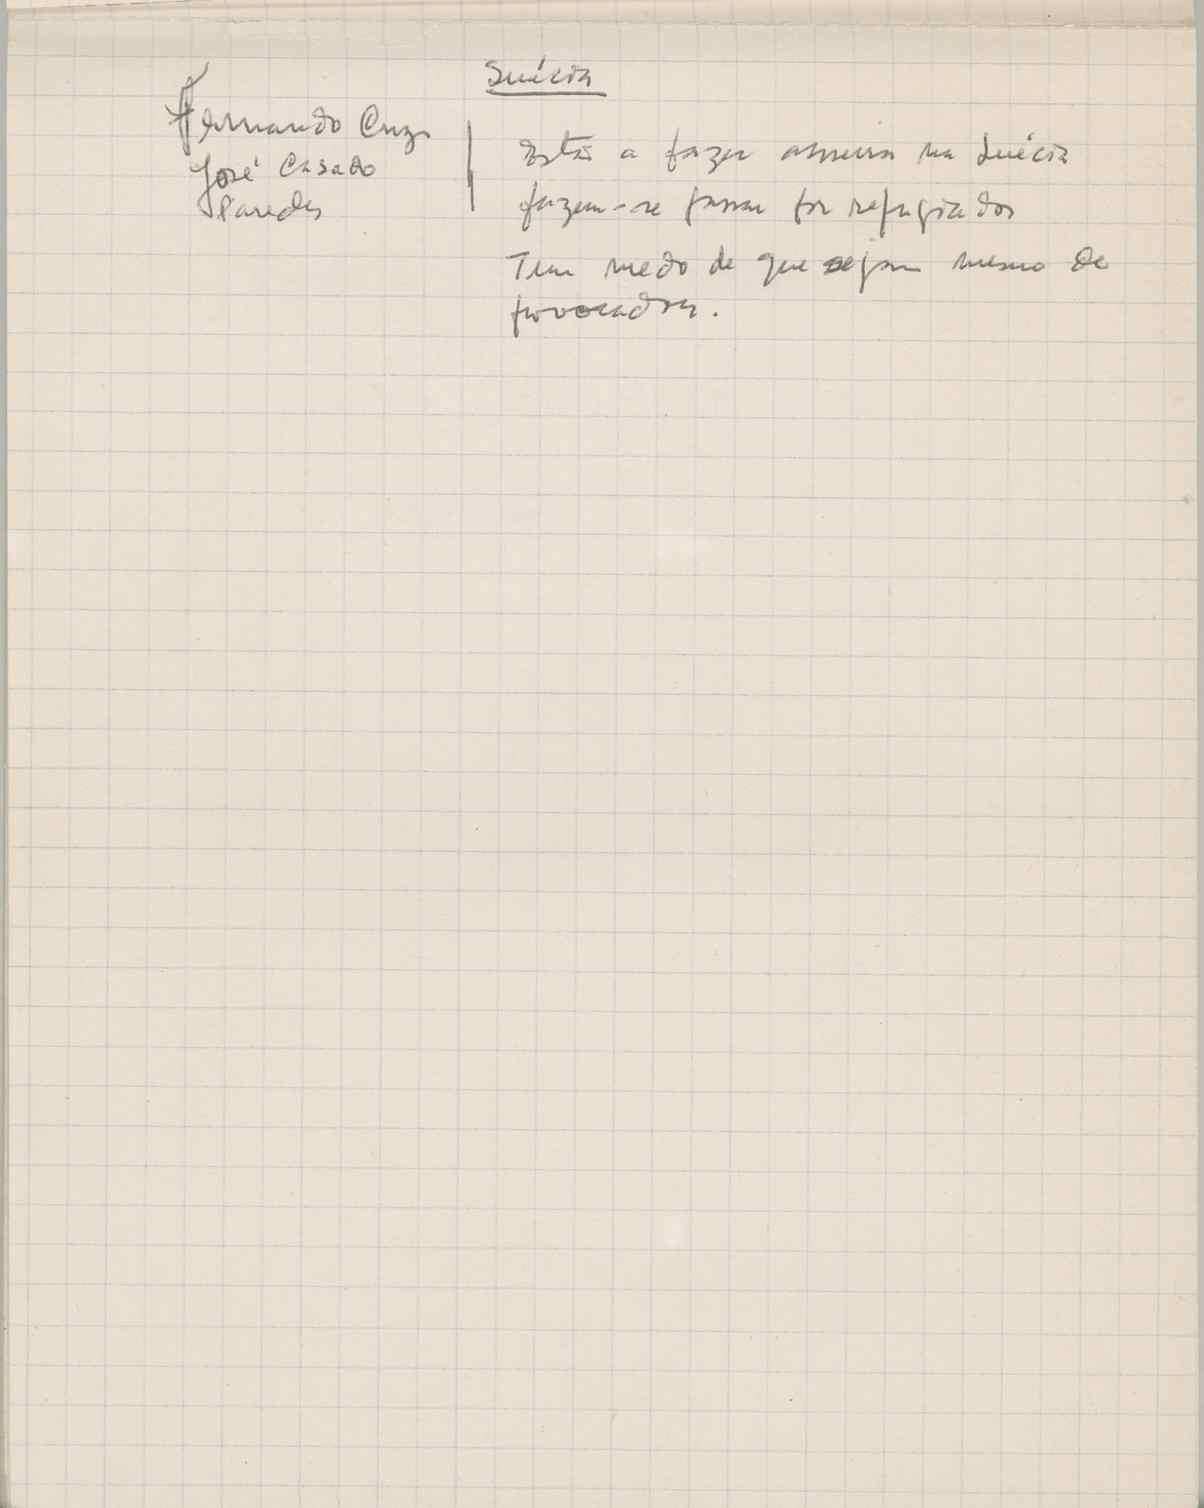 Suécia
Fernando Cruz
José Casado
Paredes
Estão a fazer asneira na Suécia
fazem-se passar por refugiados
Tem medo de que sejam mesmo de
provocadores.